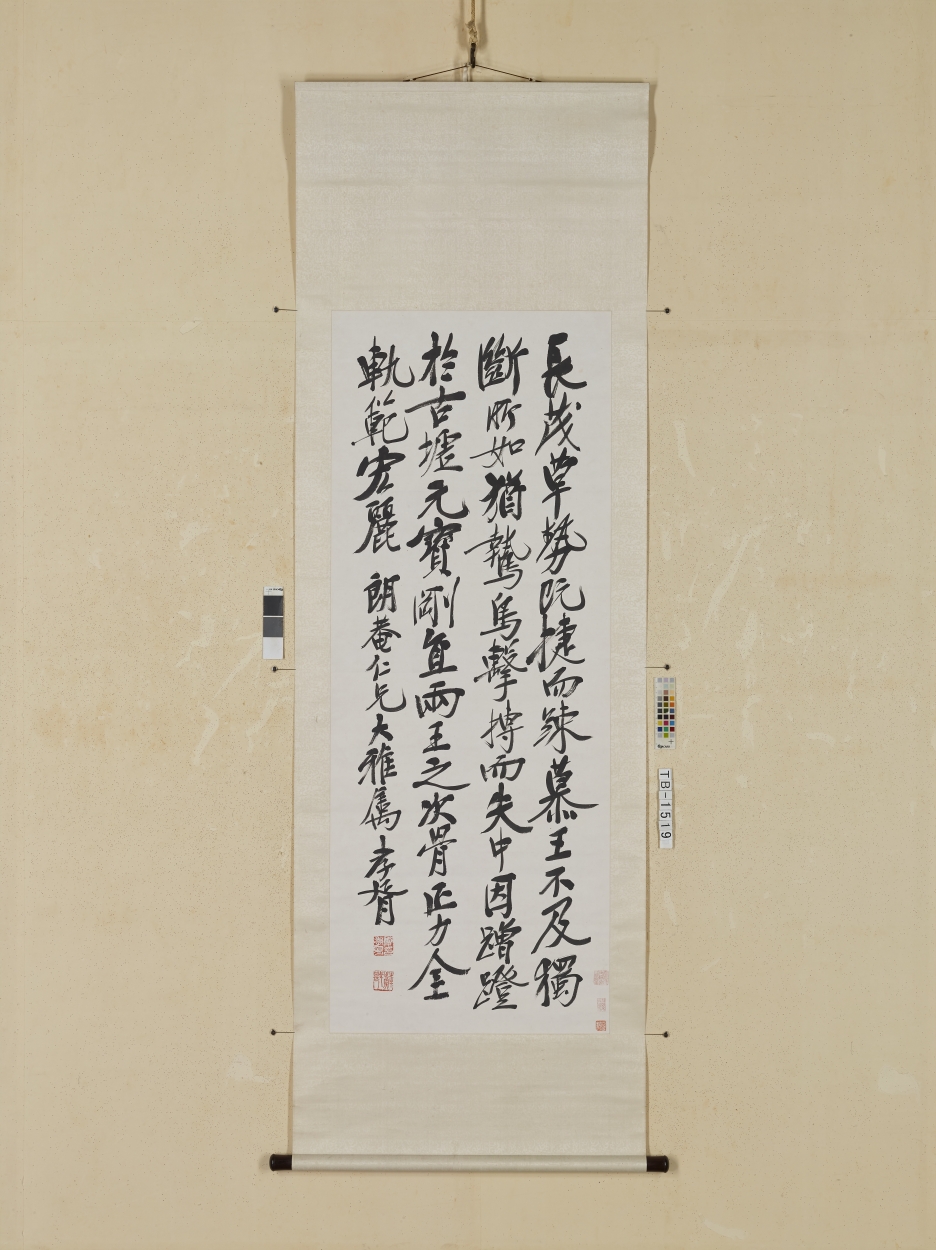 長茂草勢既捷而疎慕王不及獨
斷所如猶鷙鳥擊搏而失中因蹭蹬
於古墟元寶剛直兩王之次骨正力全
軌範宏麗 朗菴仁兄大雅屬 孝胥
TB-1519